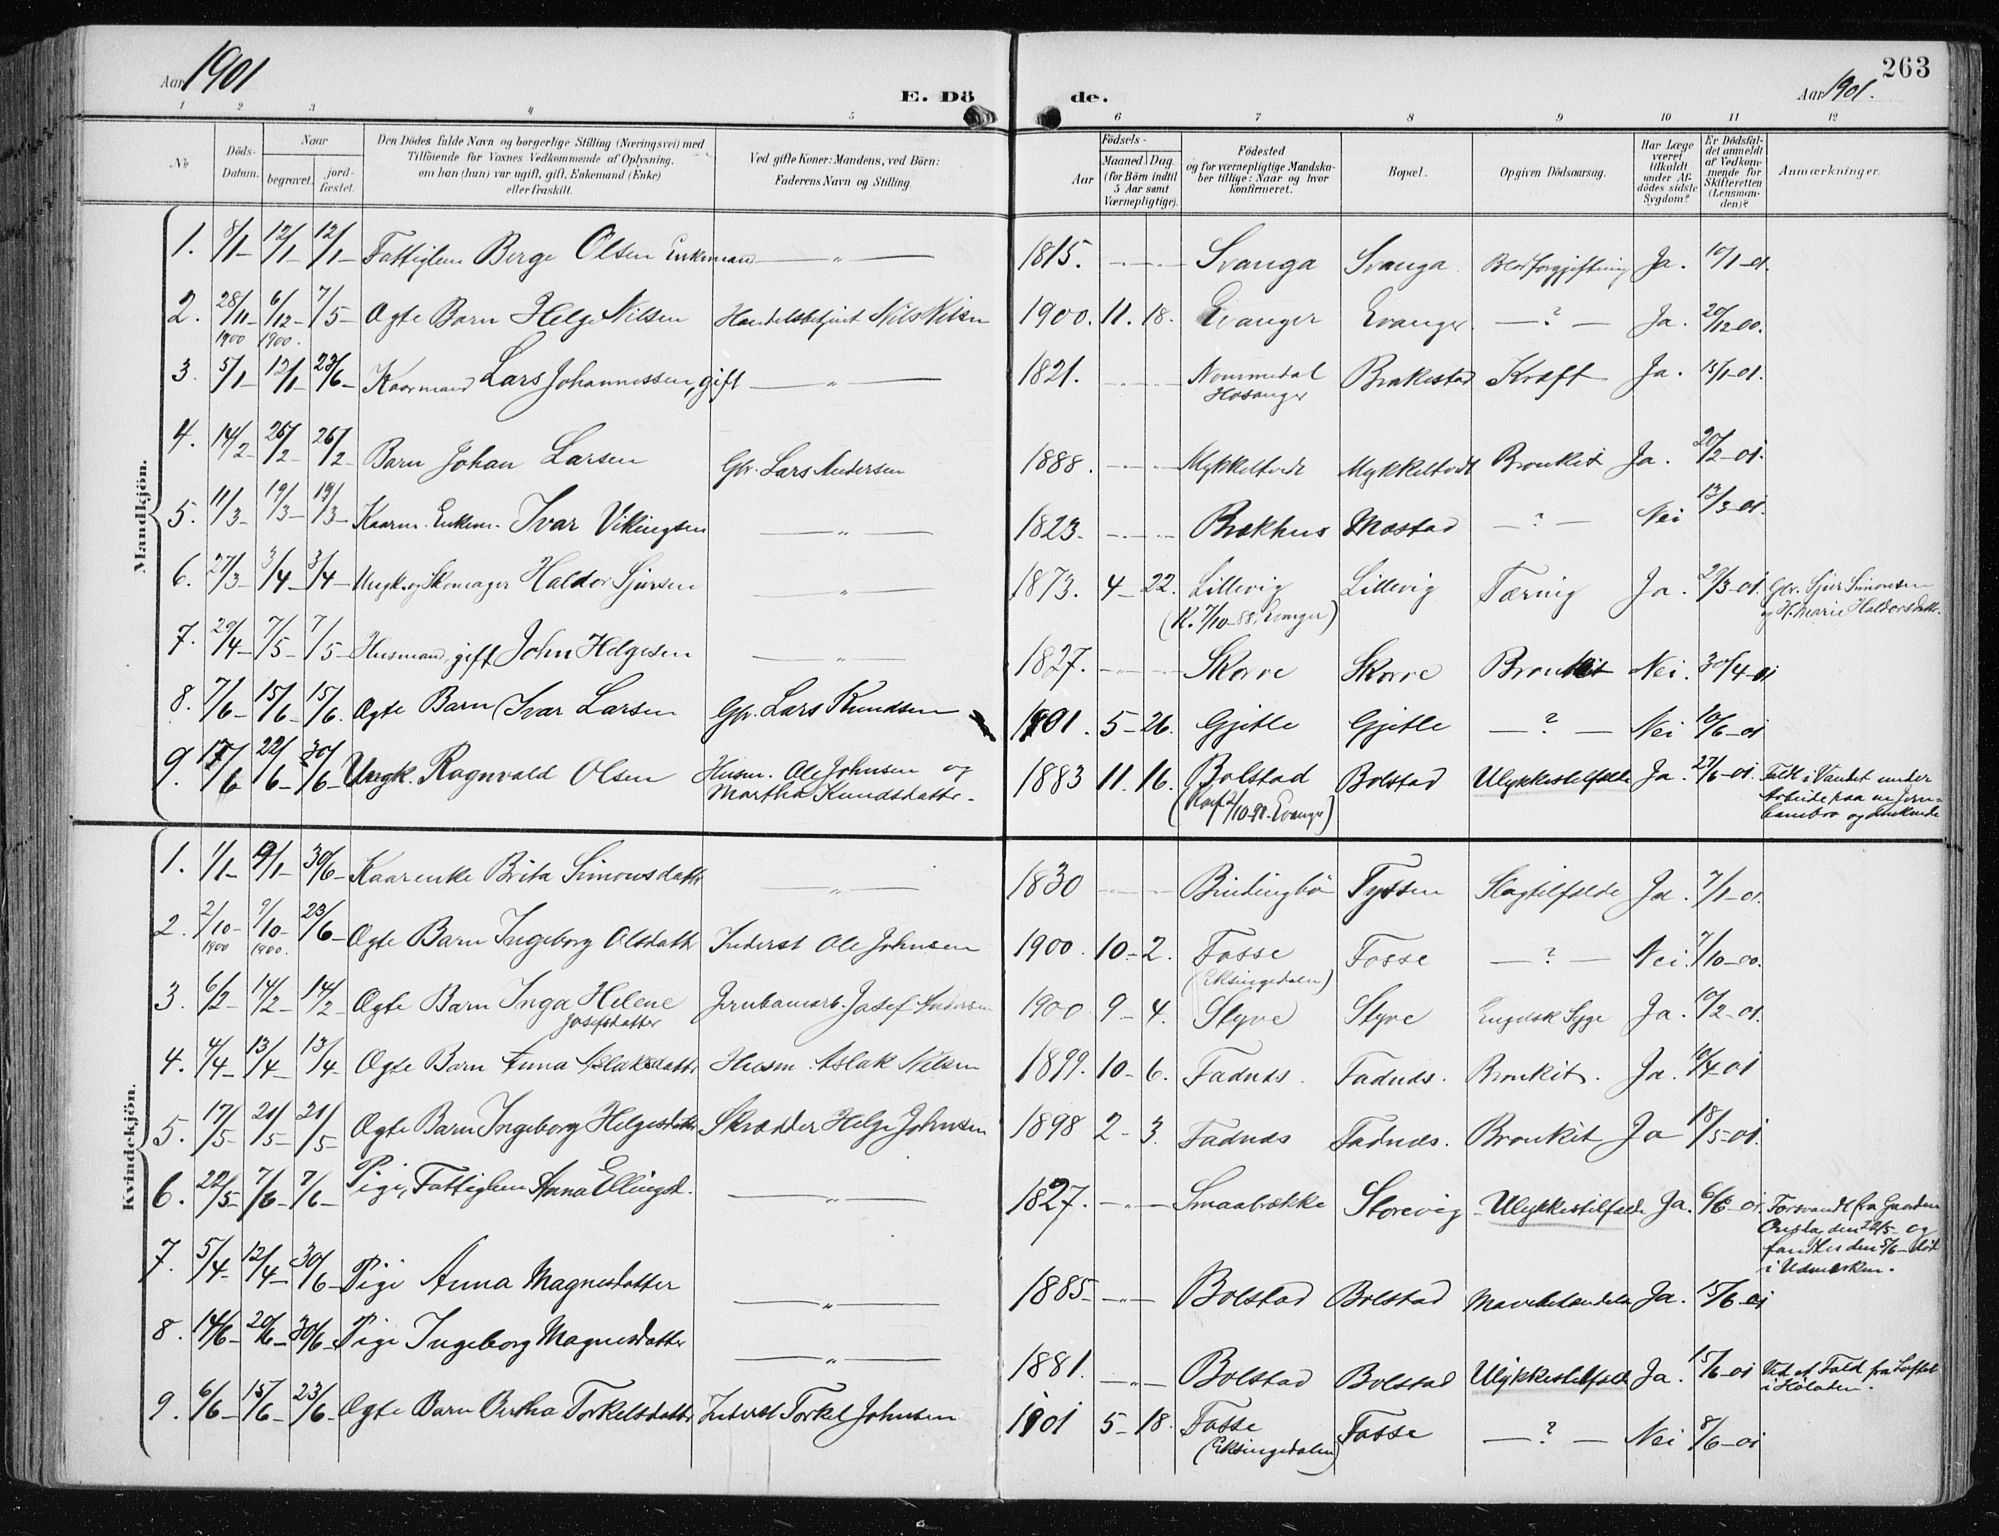 263
Aar 1901
E. Dö de.
Aar 1901.
1 2 3 4 5 6 7 8 9 10 11 12
No
Döds-Datum.
Naar
begravet.
jordfæstet.
Den Dödes fulde Navn og borgerlige Stilling (Næringsvei) med
Tilföiende for Voxnes Vedkommende af Oplysning,
om han (hun) var ugift, gift, Enkemand (Enke)
eller fraskilt.
Ved gifte Koner: Mandens, ved Börn:
Faderens Navn og Stilling.
Födsels-
Aar
Maaned Dag
(for Börn indtil
5 Aar samt
Værnepligtige).
Födested
og for værnepligtige Mandska-
ber tillige: Naar og hvor
konfirmeret.
Bopæl.
Opgiven Dödsaarsag.
Har Læge
været
tilkaldt
under Af-
dödes sidste
Sygdom?
Er Dödsfal-
det anmeldt
af Vedkom-
mende for
Skifteretten
(Lensman-
den)?
Anmærkninger.
Mandkjön.
1. 8/1 12/1 12/1 Fattiglem Berge Olsen Enkemand — „ — 1815. Svanga Svanga Blodforgiftning Ja. 10/1-01.
2. 28/11 1900 6/12 1900. 7/5 Ægte Barn Helge Nilsen Handelsbetjent Nils Nilsen 1900. 11. 18. Evanger Evanger — ? — Ja. 20/12 00.
3. 5/1 12/1 23/6 Kaarmand Lars Johannessen, gift — „ — 1821. Nommedal Hosanger Brakestad Kræft Ja. 13/1-01.
4. 14/2 26/2 26/2 Barn Johan Larsen Gbr. Lars Andersen 1888. Mykkeltvedt Mykkeltvedt Bronkit Ja. 20/2-01.
5. 11/3 19/3 19/3 Kaarm. Enkem. Ivar Vikingsen — „ — 1823. Brækhus Mæstad — ? — Nei 13/3-01.
6. 27/3 3/4 3/4 Ungk. og Skomager Haldor Sjursen — „ — 1873. 4 - 22. Lillevig (K. 7/10-88. Evanger) Lillevig Tæring Ja. 29/3-01. Gbr. Sjur Simonsen
og H. Marie Haldorsdatt.
7. 29/4 7/5 7/5 Husmand, gift John Helgesen — „ — 1827. Skorve Skorve Bronkit Nei. 30/4-01
8. 7/6 15/6 15/6. Ægte Barn Ivar Larsen Gbr. Lars Knudsen 1901. 5 - 26. Gjitle Gjitle — ? — Nei 10/6-01
9. 17/6 22/6 30/6 Ungk. Ragnvald Olsen Husm. Ole Johnsen og
Martha Knudsdatter. 1883 11. 16. Bolstad (Konf. 2/10-98. Evanger) Bolstad Ulykkestilfælde Ja. 27/6-01. Faldt i Vandet under
Arbeide paa en Jern-
banebro og druknede
Kvindekjön.
1. 1/1 9/1 30/6 Kaarenke Brita Simonsdatter — „ — 1830 Bindingbö Tyssen Slagtilfælde Ja. 7/1-01.
2. 2/10 1900 9/10 1900. 23/6 Ægte Barn Ingeborg Olsdatter Inderst Ole Johnsen 1900. 10 - 2. Fosse (Eksingedalen) Fosse — ? — Nei. 7/10-00.
3. 6/2 14/2 14/2 Ægte Barn Inga Helene
Josefsdatter Jernbanearb. Josef Andersen 1900 9 - 4. Styve Styve Engelsk Syge Ja. 10/2-01.
4. 4/4 13/4 13/4 Ægte Barn Anna Aslaksdatter Husm. Aslak Nilsen 1899. 10 - 6. Fadnæs. Fadnæs. Bronkit. Ja. 10/4-01
5. 17/5 21/5 21/5 Ægte Barn Ingeborg Helgesdatter Skrædder Helge Johnsen 1898 2 - 3. Fadnæs Fadnæs. Bronkit Ja 18/5-01.
6. 22/5 7/6 7/6 Pige, Fattiglem Anna Ellingsd. — „ — 1827. Smaabrække Storevig Ulykkestilfælde Ja. 6/6-01. Forsvandt fra Gaarden
den 22/5 og
fandtes den 5/6 död
i Udmarken.
7. 5/4 12/4 30/6 Pige Anna Magnesdatter — „ — 1885 Bolstad Bolstad Mavebetændelse Ja. 15/6-01
8. 14/6 20/6 30/6 Pige Ingeborg Magnesdatter — „ — 1881. Bolstad Bolstad Ulykkestilfælde Ja. 15/6-01 Ved et Fald fra Loftet
i Höladen.
9. 6/6 15/6 23/6 Ægte Barn Bertha Torkelsdatter Inderst Torkel Johnsen 1901 5 - 18. Fosse (Eksingedalen) Fosse — ? — Nei 8/6-01